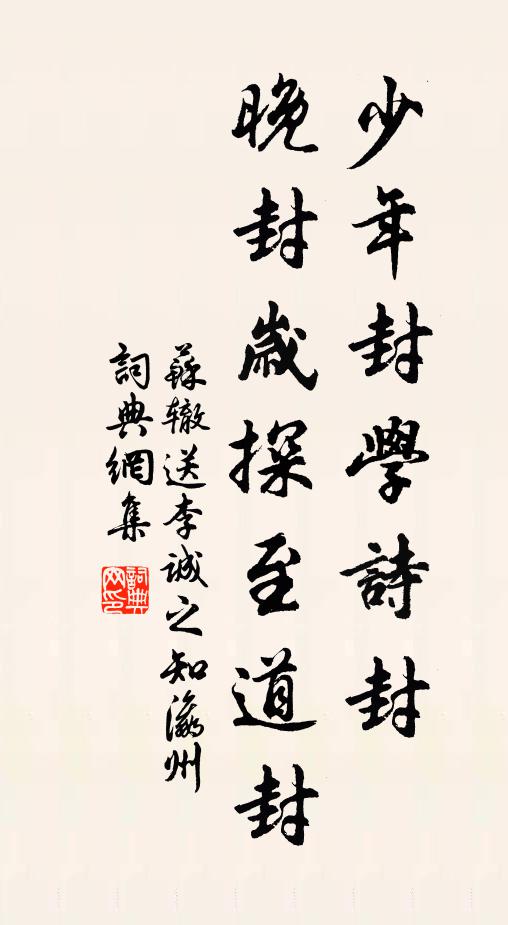 少年封學詩封
晚封歲探至道封
蘇轍送李誠之知瀛州
詞典網集
詞典
网印